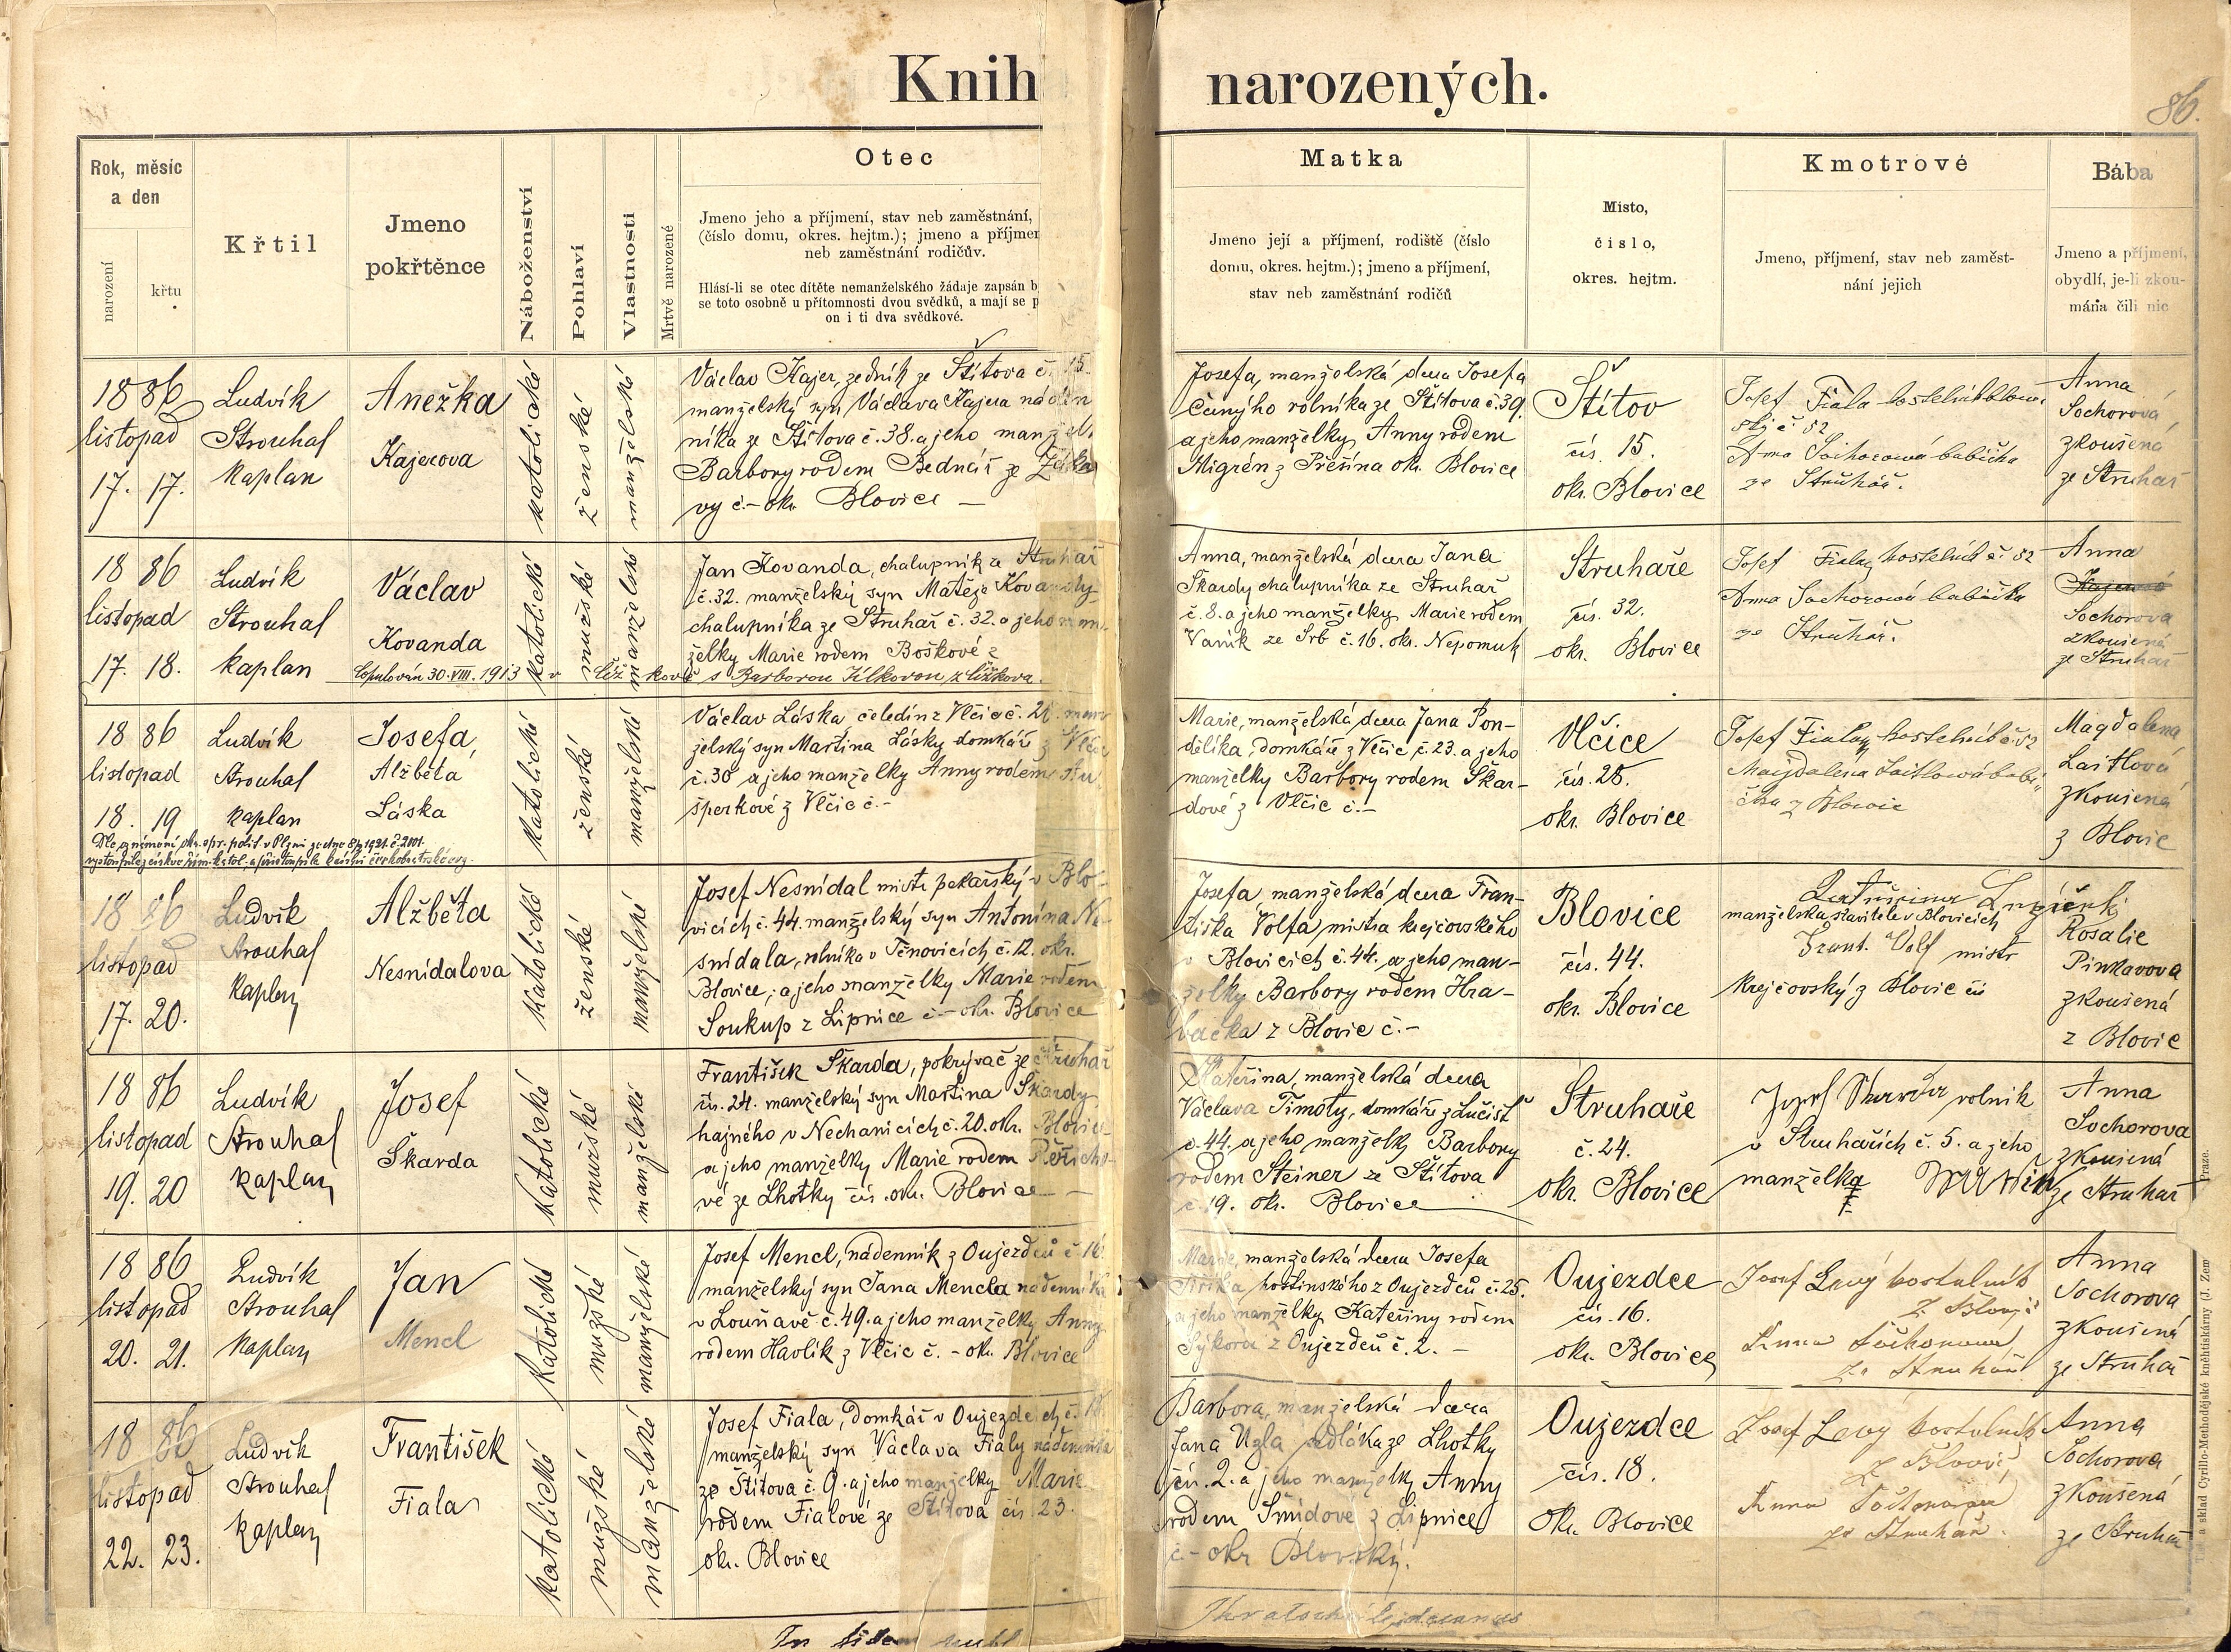 Knih narozených.
86.
Rok, měsíc
a den
narození
křtu
Křtil
Jmeno
pokřtěnce
Náboženství
Pohlaví
Vlastnosti
Mrtvě narozené
Otec
Jmeno jeho a příjmení, stav neb zaměstnání,
(číslo domu, okres. hejtm.); jmeno a příjmen
neb zaměstnání rodičův.
Hlásí-li se otec dítěte nemanželského žádaje zapsán b
se toto osobně u přítomnosti dvou svědků, a mají se p
on i ti dva svědkové.
Matka
Jmeno její a příjmení, rodiště (číslo
domu, okres. hejtm.); jmeno a příjmení,
stav neb zaměstnání rodičů
Místo,
číslo,
okres. hejtm.
Kmotrové
Jmeno, příjmení, stav neb zaměst-
nání jejich
Bába
Jmeno a příjmení,
obydlí, je-li zkou-
mána čili nic
18 86
listopad
17. 17.
Ludvík
Strouhal
kaplan
Anežka
Kajerova
katolické
ženské
manželské
Václav Kajer, zedník ze Štítova č. 15.
manželský syn Václava Kajera náden
níka ze Štítova č. 38. a jeho manžel
Barbory rodem Bednář ze
vy č. – okr. Blovice –
Josefa, manželská dcera Josefa
Černýho rolníka ze Štítova č. 39.
a jeho manželky Anny rodem
Migrén z Přešína okr. Blovice
Štítov
čís. 15.
okr. Blovice
Josef Fiala kostelník
č. 52
Anna Sochorová babička
ze Struhař.
Anna
Sochorová
zkoušená
ze Struhař
18 86
listopad
17. 18.
Ludvík
Strouhal
kaplan
Václav
Kovanda
katolické
mužské
manželské
Jan Kovanda, chalupník ze Struhař
č. 32. manželský syn Matěje Kovandy
chalupníka ze Struhař č. 32. a jeho man-
želky Marie rodem Boškové z
Copulován 30. VIII. 1913 v s Barborou Jílkovou z
Anna, manželská dcera Jana
Škardy chalupníka ze Struhař
č. 8. a jeho manželky Marie rodem
Vaník ze Srb č. 16. okr. Nepomuk
Struhaře
čís. 32.
okr. Blovice
Josef Fiala kostelník č. 52
Anna Sochorová babička
ze Struhař.
Anna
Sochorova
zkoušená
ze Struhař
18 86
listopad
18. 19
Ludvík
Strouhal
kaplan
Josefa,
Alžběta
Láska
katolické
ženské
manželské
Václav Láska čeledín z Vlčic č. 28. man
želský syn Martina Lásky domkáře z Vlčic
č. 30 a jeho manželky Anny rodem
šperkové z Vlčic č. –
Marie, manželská dcera Jana Pon-
dělíka, domkáře z Vlčic č. 23. a jeho
manželky Barbory rodem Škar-
dové z Vlčic č. –
Vlčice
čís. 28.
okr. Blovice
Josef Fiala kostelník č. 52
Magdalena Laitlová babi
čka z Blovic
Magdalena
Laitlová
zkoušená
z Blovic
Dle oznámení okr. spr. polit. v Plzni ze dne 8/4 1921. č. 2001.
vystoupila z církve řím. katol. a přistoupila
18 86
listopad
17. 20.
Ludvík
Strouhal
kaplan
Alžběta
Nesnídalova
katolické
ženské
manželské
Josef Nesnídal mistr pekařský v Blo-
vicích č. 44. manželský syn Antonína Ne
snídala, rolníka v Těnovicích č. 12. okr.
Blovice, a jeho manželky Marie rodem
Soukup z Lipnice č. – okr. Blovice
Josefa, manželská dcera Fran-
tiška Volfa mistra krejčovského
v Blovicích č. 44. a jeho man-
želky Barbory rodem Hra-
bačka z Blovic č. –
Blovice
čís. 44.
okr. Blovice
manželka stavitele v Blovicích
Frant. Volf mistr
krejčovský z Blovic čís
Rosalie
Pinkavova
zkoušená
z Blovic
18 86
listopad
19. 20
Ludvík
Strouhal
kaplan
Josef
Škarda
katolické
mužské
manželské
František Škarda, pokrývač ze Struhař
čís. 24. manželský syn Martina Škardy
hajného v Nechanicích č. 20. okr. Blovice
a jeho manželky Marie rodem
vé ze Lhotky čís. okr. Blovice –
Kateřina, manželská dcera
Václava Timoty, domkáře z Lučišť
č. 44. a jeho manželky Barbory
rodem Steiner ze Štítova
č. 19. okr. Blovice
Struhaře
č. 24.
okr. Blovice
Josef Škarda rolník
v Struhařích č. 5. a jeho
manželka
Anna
Sochorova
zkoušená
ze Struhař
18 86
listopad
20. 21.
Ludvík
Strouhal
kaplan
Jan
Mencl
katolické
mužské
manželské
Josef Mencl, nádenník z Oujezdců č. 16.
manželský syn Jana Mencla nádenníka
v Louňavě č. 49. a jeho manželky Anny
rodem Havlík z Vlčic č. – okr. Blovice
Marie, manželská dcera Josefa
hostinského z Oujezdců č. 25.
a jeho manželky Kateřiny rodem
Sýkora z Oujezdců č. 2. –
Oujezdce
čís. 16.
okr. Blovice
Josef Levý kostelník
z Blovic
Anna Sochorova
ze Struhař
Anna
Sochorova
zkoušená
ze Struhař
18 86
listopad
22. 23.
Ludvík
Strouhal
kaplan
František
Fiala
katolické
mužské
manželské
Josef Fiala, domkář v Oujezdcích č. 18
manželský syn Václava Fialy nádenníka
ze Štítova č. 9. a jeho manželky Marie
rodem Fialové ze Štítova čís 23.
okr. Blovice
Barbora, manželská dcera
Jana Uzla sedláka ze Lhotky
čís. 2. a jeho manželky Anny
rodem Šmídové z Lipnice
č. – okr Blovský.
Oujezdce
čís. 18.
okr. Blovice
Josef Levý kostelník
z Blovic
Anna Sochorova
ze Struhař.
Anna
Sochorova
zkoušená
ze Struhař
Tisk a sklad Cyrillo-Methodějské kněhtiskárny (J. Zem Praze.